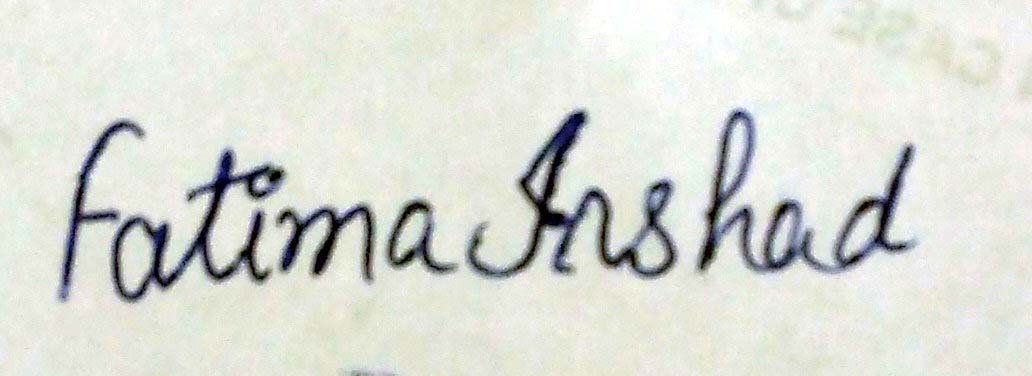 Fatima Irshad